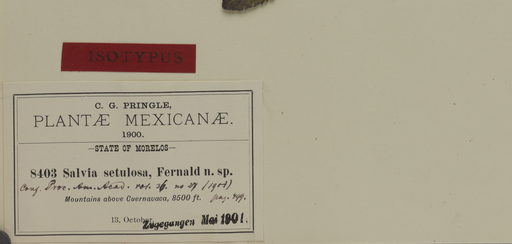 ISOTYPUS
C. G. PRINGLE,
PLANTÆ MEXICANÆ.
1900.
—STATE OF MORELOS—
8403 Salvia setulosa, Fernald n. sp.
Proc. Am. Acad. vol. no 27 (1901)
Mountains above Cuernavaca, 8500 ft. pag.
13, October.
Zugegangen Mai 1901.